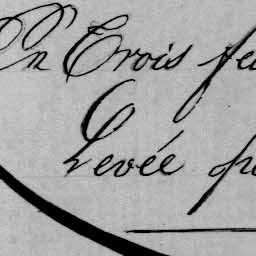 En Trois fe
Levée p